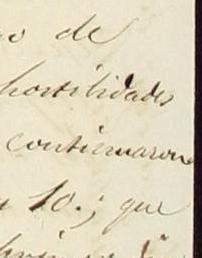 de
hostilidades
continuaron
10.; que